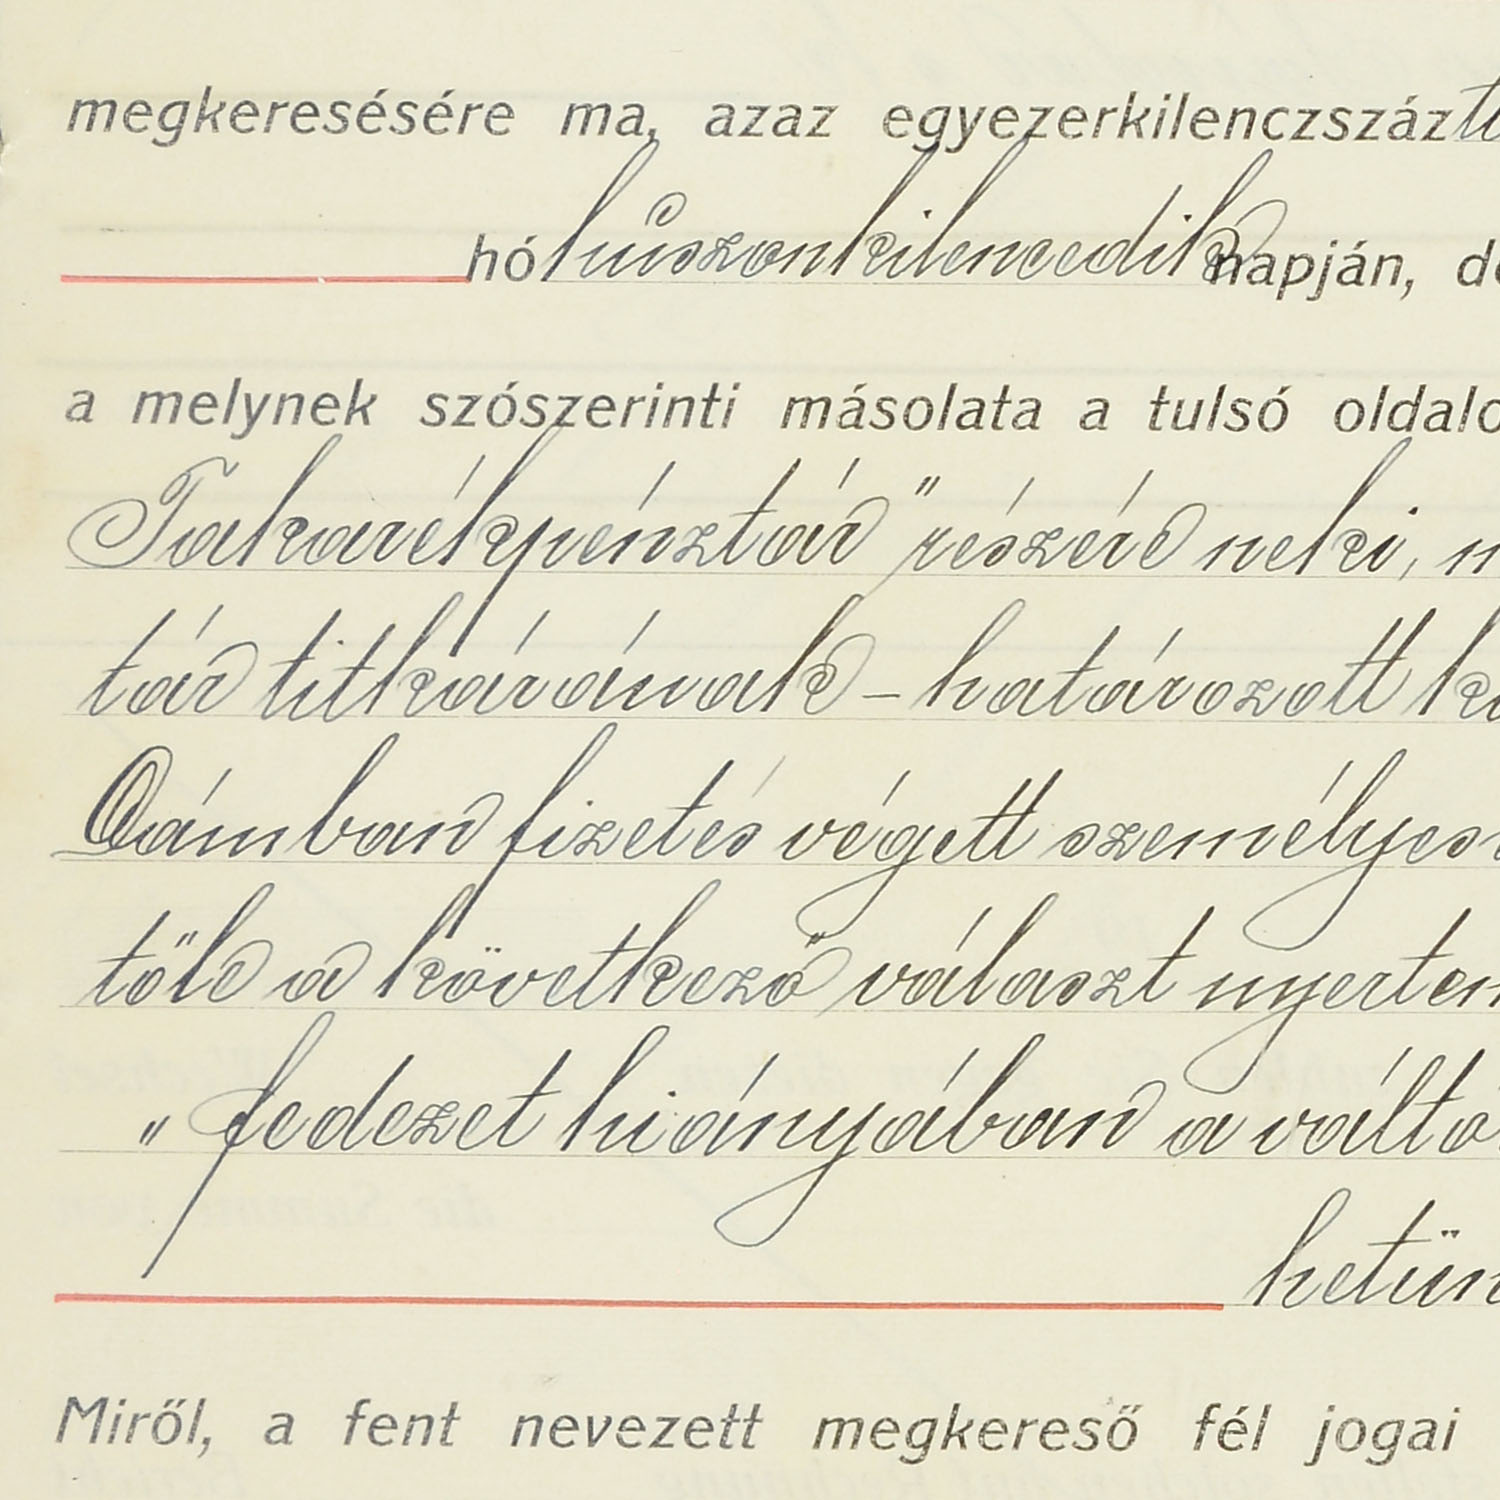 megkeresésére ma, azaz egyezerkilenczszáz
hó huszonkilencedik napján,
a melynek szószerinti másolata a tulsó oldalo
Takarékpénztár" részére neki,
tár titkárának – határozott
fizetés végett személyes
tőle a következő választ nyertem
„fedezet hiányában a válto
hetün
Miről, a fent nevezett megkereső fél jogai